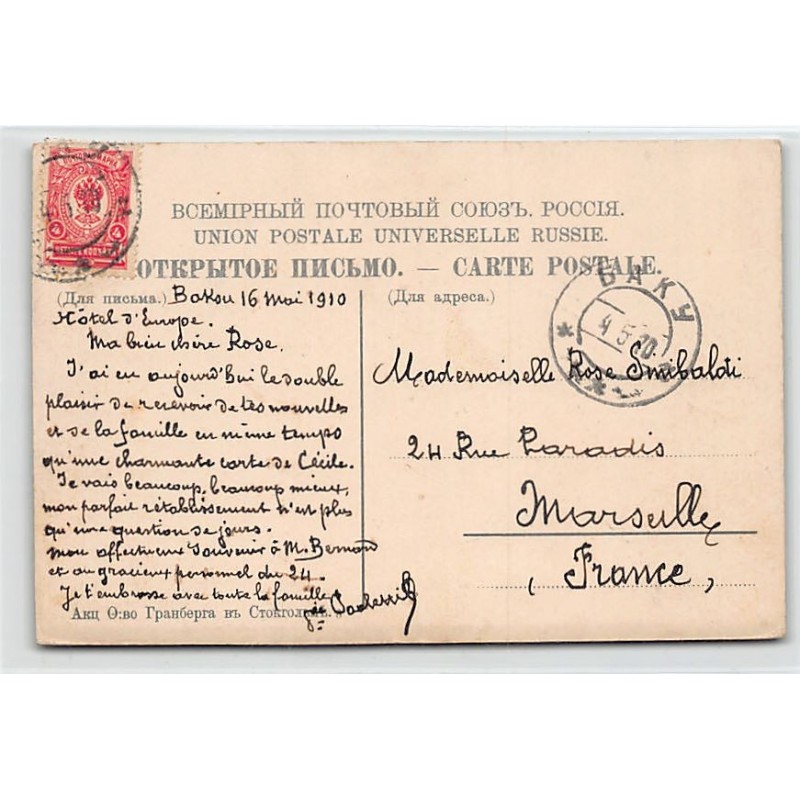 ВСЕМІРНЫЙ ПОЧТОВЫЙ СОЮЗЪ. РОССІЯ.
UNION POSTALE UNIVERSELLE RUSSIE.
ОТКРЫТОЕ ПИСЬМО. — CARTE POSTALE.
(Для письма.) Bakou 16 Mai 1910
Hôtel d'Europe.
Ma bien chère Rose.
J'ai eu aujourd'hui le double
plaisir de recevoir de tes nouvelles
et de la famille en même temps
qu'une charmante carte de Cécile.
Je vais beaucoup, beaucoup mieux,
mon parfait rétablissement n'est plus
qu'une question de jours.
Mon affectueux souvenir à M. Bernard
et au gracieux personnel du 24.
Je t'embrasse avec toute la famille
Акц О:во Гранберга въ Стокгольмѣ.
(Для адреса.)
БАКУ
4 5 10
Mademoiselle Rose Sinibaldi
24 Rue Paradis
Marseille
(France)
4 4